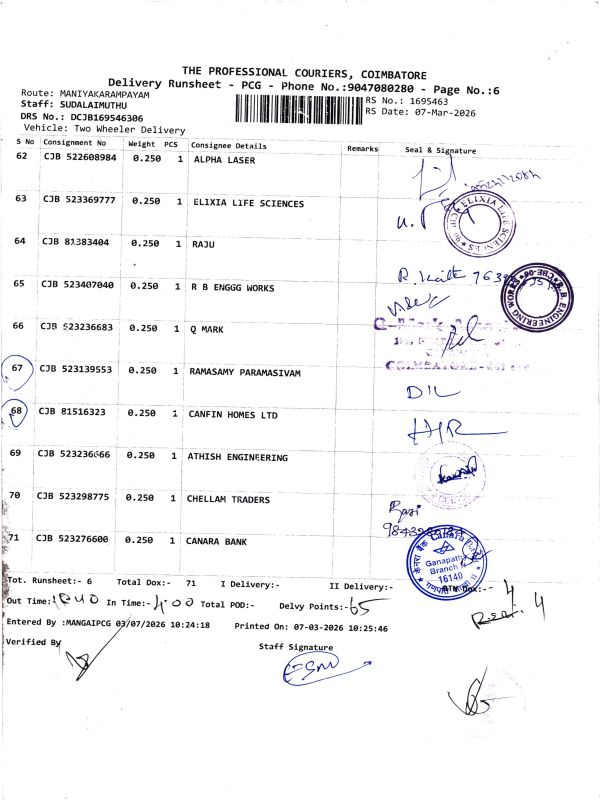 THE PROFESSIONAL COURIERS, COIMBATORE
Delivery Runsheet - PCG - Phone No.:9047080280 - Page No.:6
Route: MANIYAKARAMPAYAM
RS No.: 1695463
Staff: SUDALAIMUTHU
RS Date: 07-Mar-2026
DRS No.: DCJB169546306
Vehicle: Two Wheeler Delivery
S No Consignment No Weight PCS Consignee Details Remarks Seal & Signature
62 CJB 522608984 0.250 1 ALPHA LASER
63 CJB 523369777 0.250 1 ELIXIA LIFE SCIENCES
ELIXIA LIFE SCIENCES
64 CJB 81383404 0.250 1 RAJU
65 CJB 523407040 0.250 1 R B ENGGG WORKS
R.B. ENGINEERING WORKS CBE-06
66 CJB 523236683 0.250 1 Q MARK
67 CJB 523139553 0.250 1 RAMASAMY PARAMASIVAM
DIL
68 CJB 81516323 0.250 1 CANFIN HOMES LTD
69 CJB 523236666 0.250 1 ATHISH ENGINEERING
70 CJB 523298775 0.250 1 CHELLAM TRADERS
71 CJB 523276600 0.250 1 CANARA BANK
Ganapathy Branch
16140
Tot. Runsheet:- 6 Total Dox:- 71 I Delivery:- II Delivery:- Dox:- 4
Out Time: In Time:- 4:00 Total POD:- Delvy Points:- 65
Entered By :MANGAIPCG 03/07/2026 10:24:18 Printed On: 07-03-2026 10:25:46
Verified By
Staff Signature